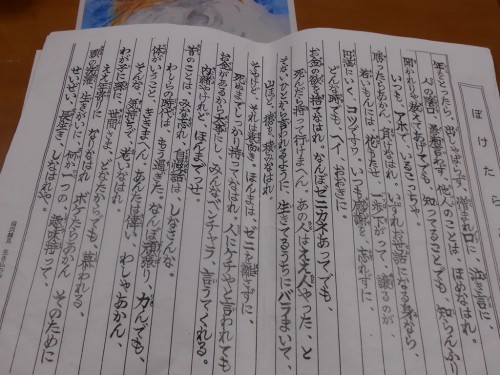 ぼけたら
年をとったら、出しゃばらず、憎まれ口に、泣き言に、
人の陰口、愚痴言わず、他人のことは、ほめなはれ。
聞かれりゃ教えてあげても、知ってることでも、知らんふり
いつも、アホで、いるこっちゃ。
勝ったらあかん、負けなはれ。いずれお世話になる身なら、
若いもんには、花もたせ、一歩下がって、譲るのが、
円満にいく、コツですわ。いつも感謝を、忘れずに、
どんな時でも、ヘイ、おおきに。
お金の欲を、捨てなはれ。なんぼゼニカネあってでも、
死んだら持って行けまへん。あの人はええ人やった、と
そない、ひとから言われるように、生きてるうちにバラまいて、
山ほど、徳を、積みなはれ
そやけど、それは表向き。ほんまは、ゼニを、離さずに、
死ぬまでしっかり持ってなはれ。人にケチやと言われても
お金があるから大事にし、みんなベンチャラ、言うてくれる。
内緒やけれど、ほんまでっせ。
昔のことは、みな忘れ、自慢話は、しなさんな。
わしらの時代は、もう過ぎた。なんぼ頑張り、力んでも、
体がいうこと、ききまへん。あんたは偉い、わしゃあかん、
そんな、気持ちで、おりなはれ。
わが子に孫に、世間さま、どなたからでも、慕われる、
ええ年寄りに、なりなはれ ボケたらあかん そのために
頭の洗濯、生きがいに、何か一つの、趣味持って、
せいぜい、長生き、しなはれや。